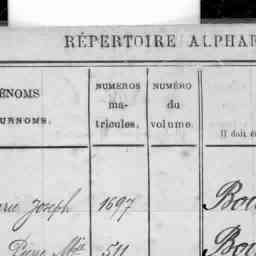 RÉPERTOIRE ALPHAB
ÉNOMS
URNOMS.
NUMEROS
ma-
tricules.
NUMÉRO
du
volume.
Il doit êt
rie Joseph 1697 Bou
Pierre Mie 511 Bou